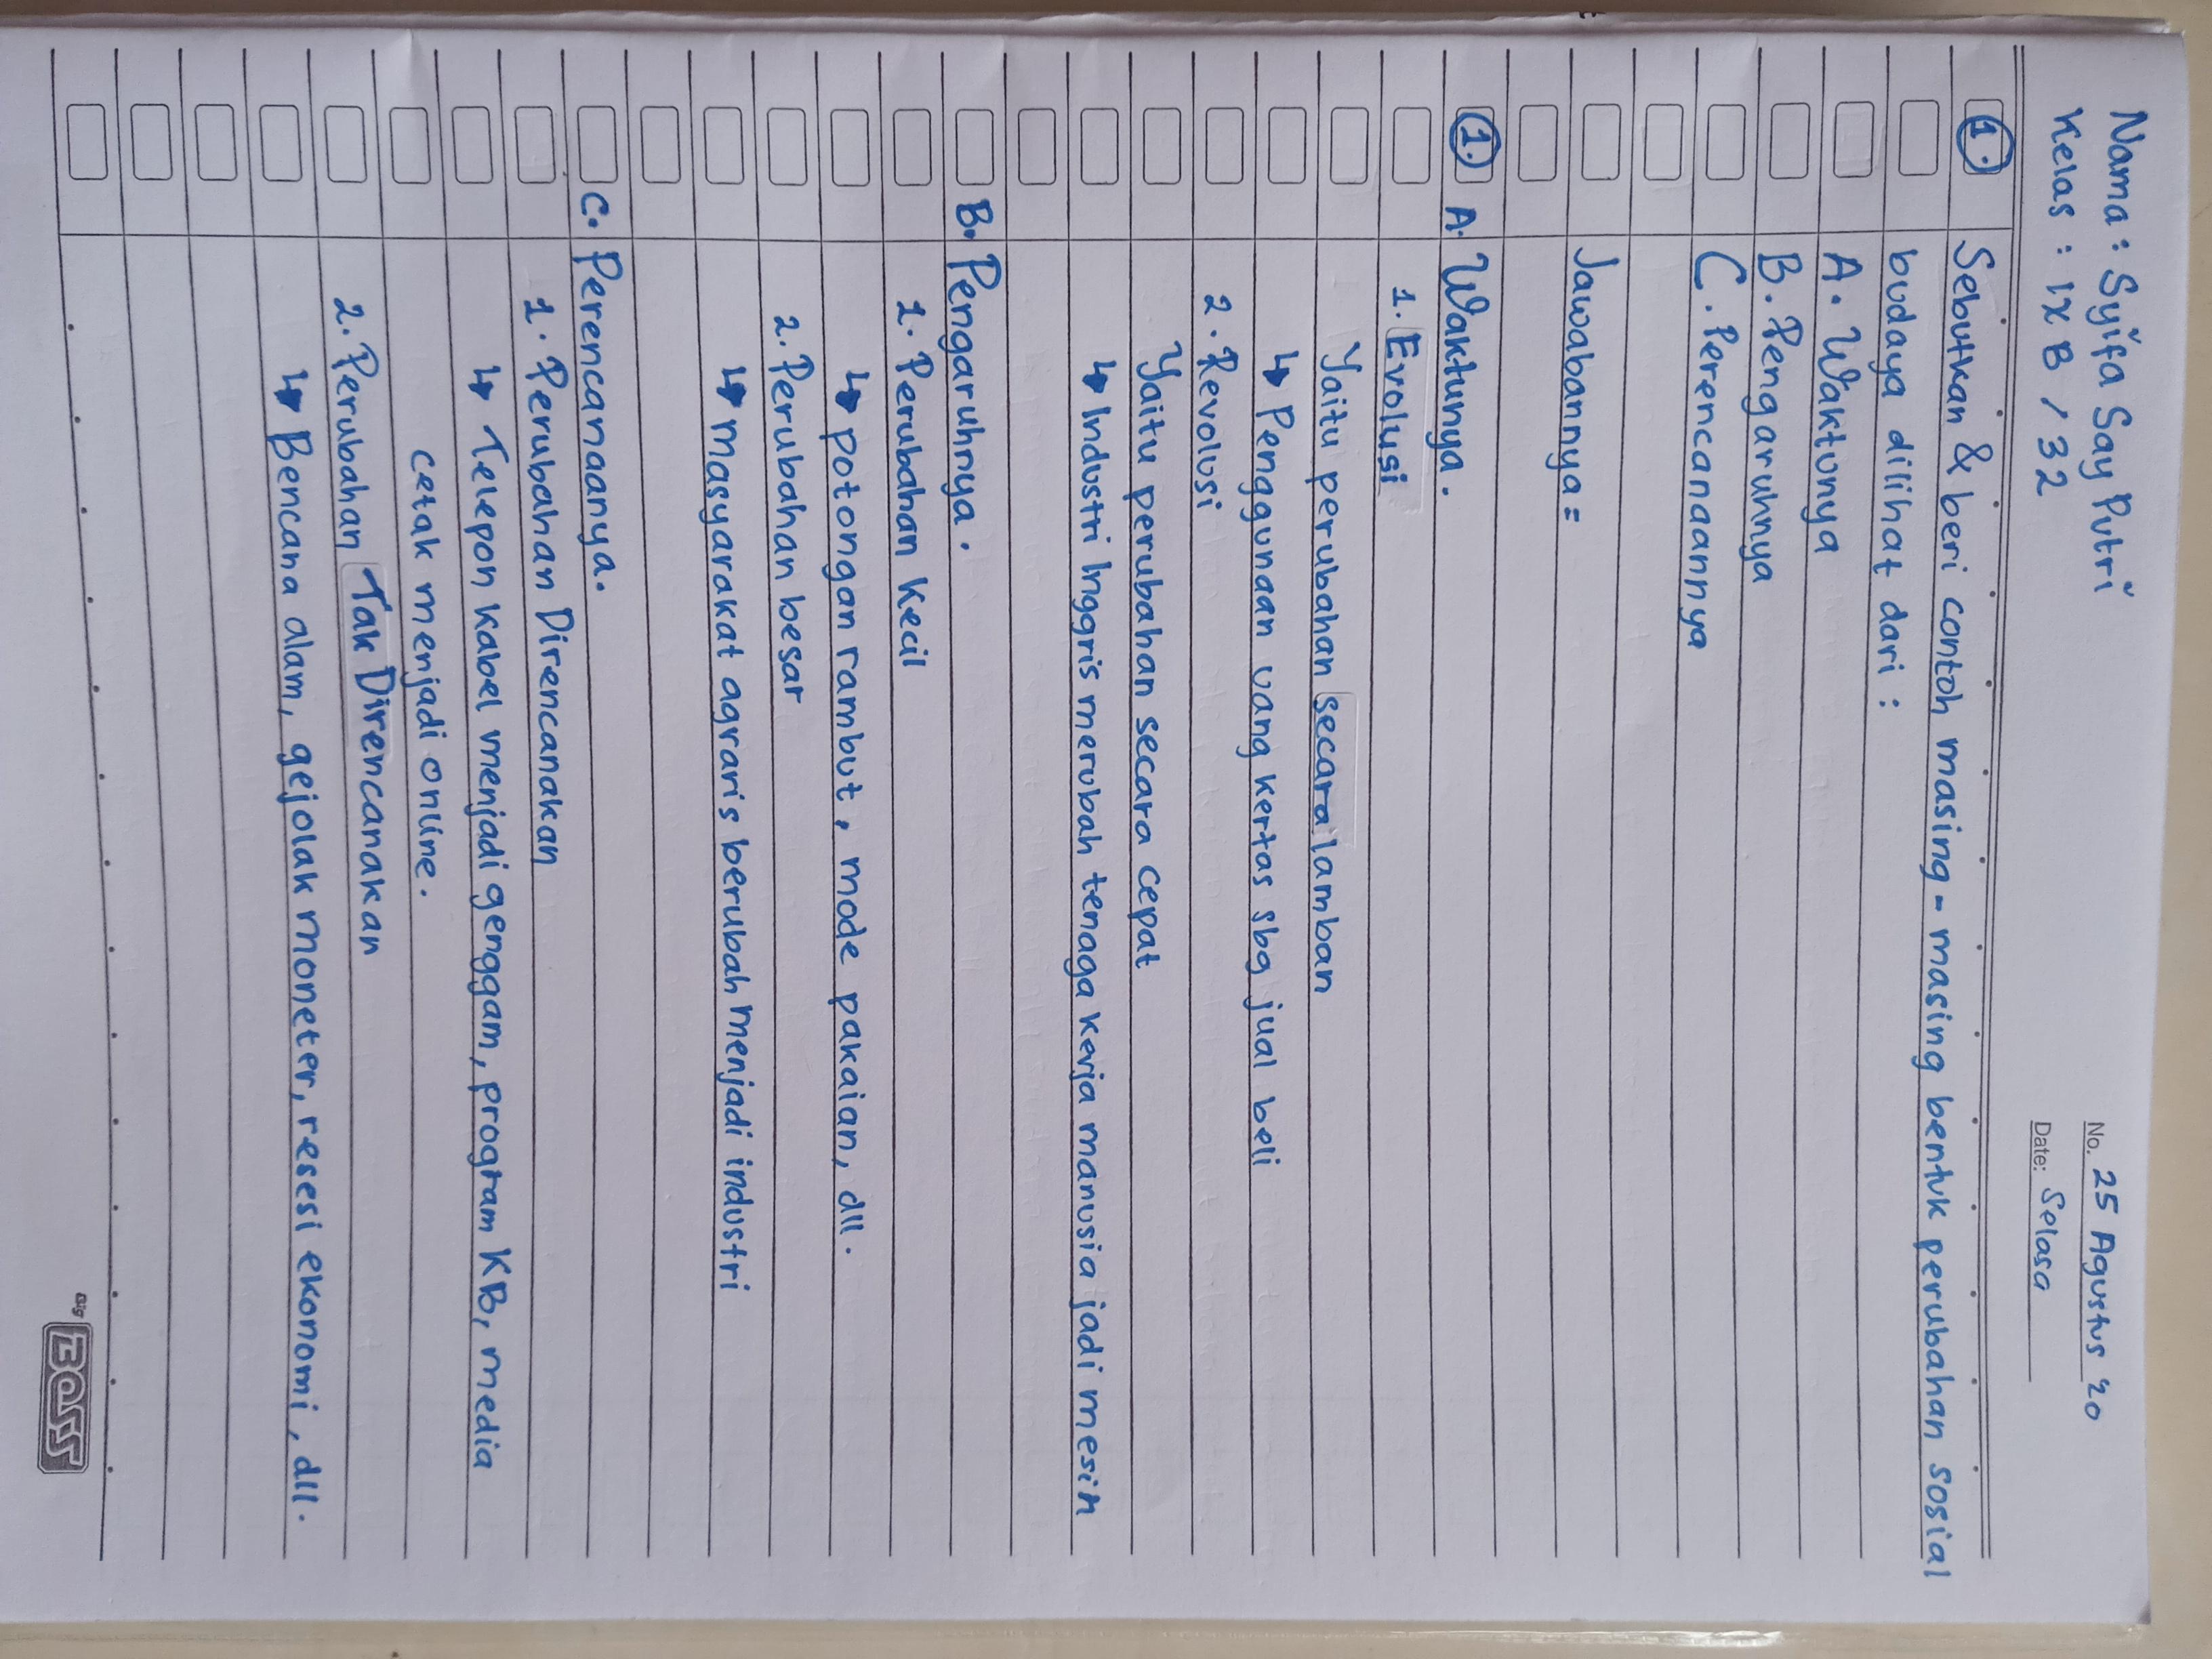 Nama : Syifa Say Putri
Kelas : IX B / 32
No. 25 Agustus 20
Date: Selasa
1. Sebutkan & beri contoh masing-masing bentuk perubahan sosial
budaya dilihat dari :
A. Waktunya
B. Pengaruhnya
C. Perencanaannya
Jawabannya =
1. A. Waktunya.
1. Evolusi
Yaitu perubahan secara lamban
↳ Penggunaan uang kertas sbg jual beli
2. Revolusi
Yaitu perubahan secara cepat
↳ Industri Inggris merubah tenaga kerja manusia jadi mesin
B. Pengaruhnya.
1. Perubahan Kecil
↳ potongan rambut, mode pakaian, dll.
2. Perubahan besar
↳ masyarakat agraris berubah menjadi industri
C. Perencanaanya.
1. Perubahan Direncanakan
↳ Telepon kabel menjadi genggam, program KB, media
cetak menjadi online.
2. Perubahan Tak Direncanakan
↳ Bencana alam, gejolak moneter, resesi ekonomi, dll.
Big BOSS